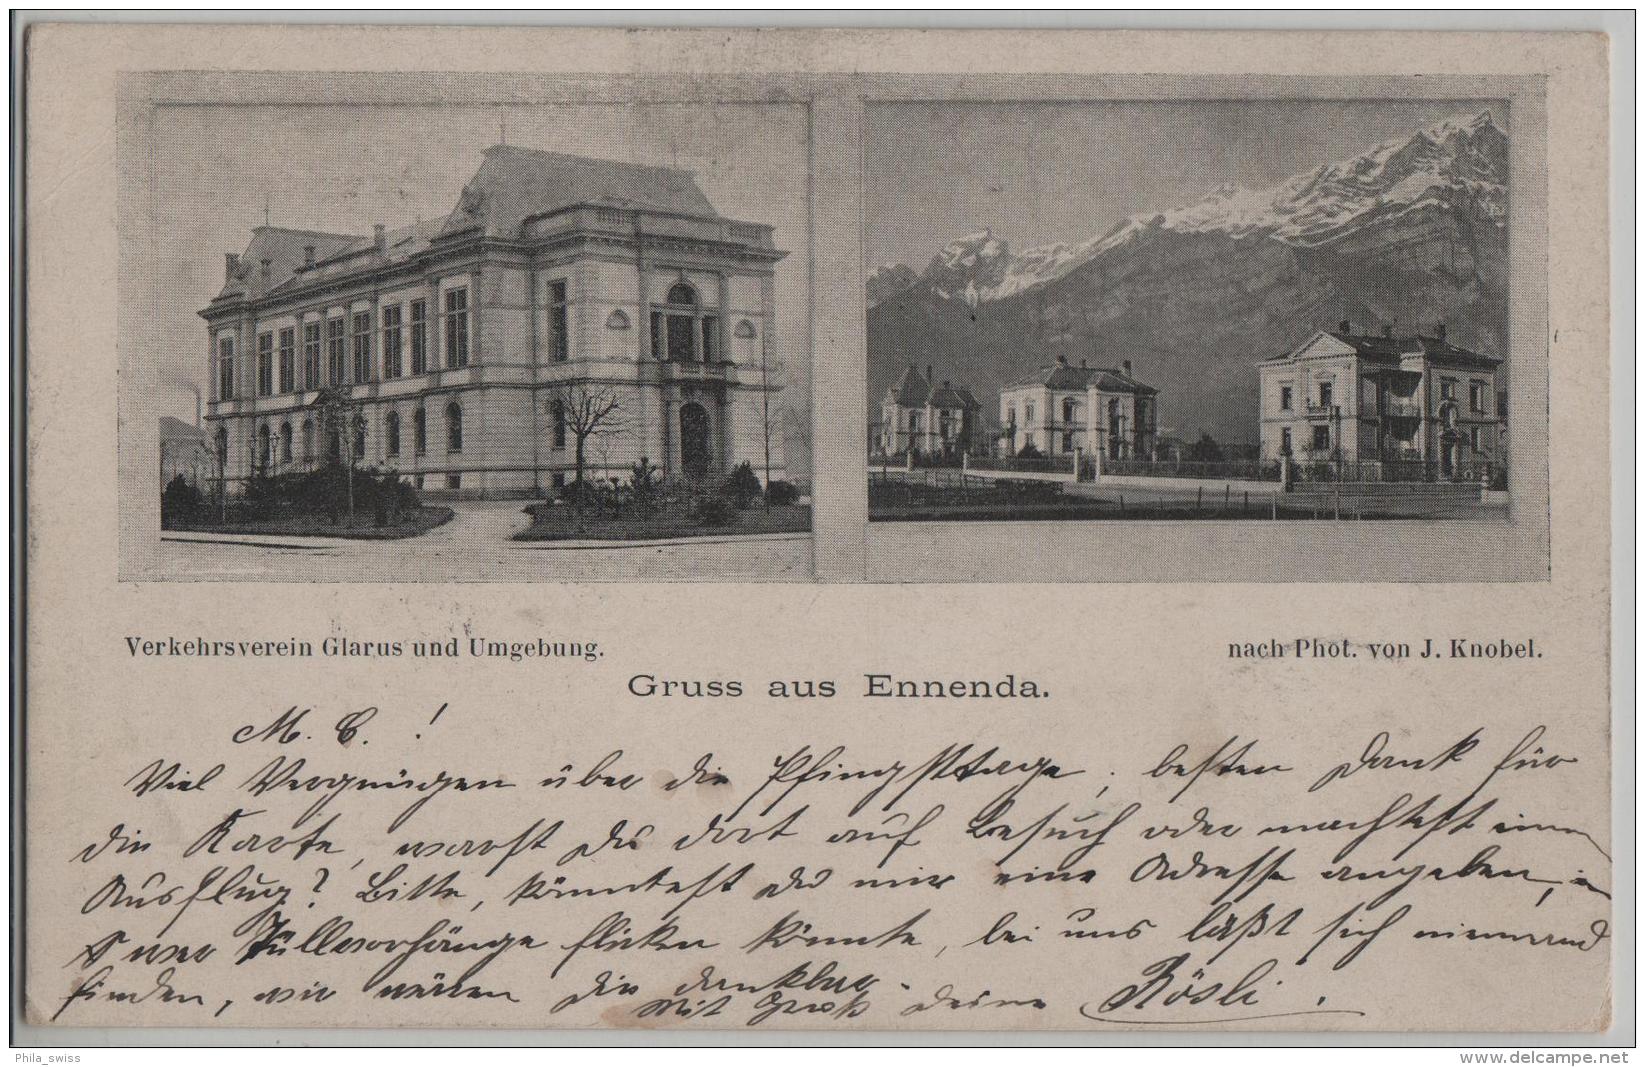 Verkehrsverein Glarus und Umgebung.
nach Phot. von J. Knobel.
Gruss aus Ennenda.
M. C. !
Viel Vergnügen über die Pfingsttage, besten Dank für
die Karte, warst du dort auf Besuch oder machtest einen
Ausflug? Bitte, könntest du mir eine Adresse angeben,
wer Tüllvorhänge flicken könnte, bei uns läßt sich niemand
finden, wir wären dir dankbar.
Mit Gruß deine Rösli.
Phila_swiss
www.delcampe.net